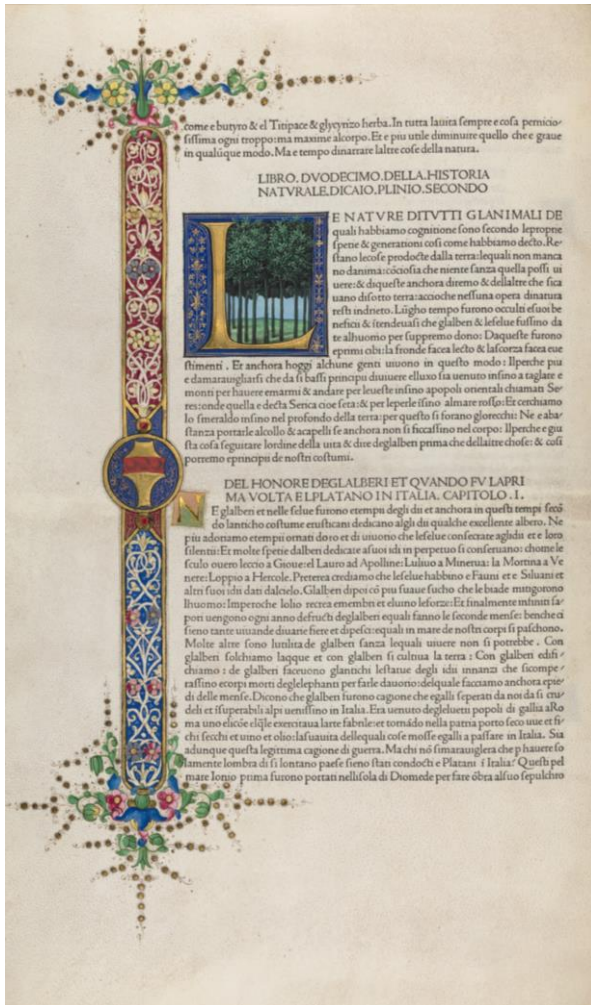 come e butyro & el Titipace & glycyrizo herba. In tutta lauita sempre e cosa pernicio-
sissima ogni troppo: ma maxime alcorpo. Et e piu utile diminuire quello che e graue
in qualũque modo. Ma e tempo dinarrare laltre cose della natura.
LIBRO. DVODECIMO. DELLA. HISTORIA
NATVRALE. DICAIO. PLINIO. SECONDO
LE NATVRE DITVTTI GLANIMALI DE
quali habbiamo cognitione sono secondo leproprie
spetie & generationi cosi come habbiamo decto. Re-
stano lecose prodocte dalla terra: lequali non manca
no danima: cõciosia che niente sanza quella possi ui
uere: & diqueste anchora diremo & dellaltre che si ca
uano disotto terra: accioche nessuna opera dinatura
resti indrieto. Lũgho tempo furono occulti esuoi be
neficii & ĩtendeuasi che glalberi & leselue fussino da
te alhuomo per suppremo dono: Daqueste furono
eprimi cibi: la fronde facea lecto & lascorza facea eue
stimenti. Et anchora hoggi alchune genti uiuono in questo modo: Ilperche piu
e damarauigliarsi che da sĩ bassi principii diuiuere elluxo sia uenuto insino a tagliare e
monti per hauere emarmi & andare per leueste insino apopoli orientali chiamati Se-
res: onde quella e decta Serica cioe seta: & per leperle insino almare rosso: Et cerchiamo
lo smeraldo insino nel profondo della terra: per questo si forano glorecchi: Ne e aba-
stanza portarle alcollo & acapelli se anchora non si ficcassino nel corpo: Ilperche e giu
sta cosa seguitare lordine della uita & dire deglalberi prima che dellaltre chose: & cosi
porremo eprincipii de nostri costumi.
DEL HONORE DEGLALBERI ET QVANDO FV LAPRI
MA VOLTA ELPLATANO IN ITALIA. CAPITOLO .I.
NE glalberi et nelle selue furono etempii degli dii et anchora in questi tempi secõ
do lanticho costume erusticani dedicano algli dii qualche excellente albero. Ne
piu adoriamo etempii ornati doro et di auorio che leselue consecrate aglidii et e loro
silentii: Et molte spetie dalberi dedicate asuoi idii in perpetuo si conseruano: chome le
sculo ouero leccio a Gioue: el Lauro ad Apolline: Luliuo a Minerua: la Mortina a Ve
nere: Loppio a Hercole. Preterea crediamo che leselue habbino e Fauni et e Siluani et
altri suoi idii dati dalcielo. Glalberi dipoi cõ piu suaue sucho che le biade mitigorono
lhuomo: Imperoche lolio recrea emembri et eluino leforze: Et finalmente infiniti sa-
pori uengono ogni anno defructi deglalberi equali fanno le seconde mense: benche ci
sieno tante uiuande diuane fiere et dipesci: equali in mare de nostri corpi si paschono.
Molte altre sono lutilita de glalberi sanza lequali uiuere non si potrebbe. Con
glalberi solchiamo lacque et con glalberi si cultiua la terra: Con glalberi edifi-
chiamo: de glalberi faceuono glantichi lestatue degli idii innanzi che sicompe-
rassino ecorpi morti deglelephanti per farle dauorio: delquale facciamo anchora epie-
di delle mense. Dicono che glalberi furono cagione che egalli seperati da noi da sĩ cru
deli et ĩsuperabili alpi uenissino in Italia. Era uenuto deglelueti popoli di gallia aRo
ma uno elicõe elq̃le exercitaua larte fabrile: et tornãdo nella patria porto seco uue et fi-
chi secchi et uino et olio: lasuauita dellequali cose mosse egalli a passare in Italia. Sia
adunque questa legittima cagione di guerra. Ma chi nõ simarauiglera che p hauere so
lamente lombra di sĩ lontano paese sieno stati condocti e Platani ĩ Italia? Questi pel
mare Ionio prima furono portati nellisola di Diomede per fare õbra alsuo sepulchro